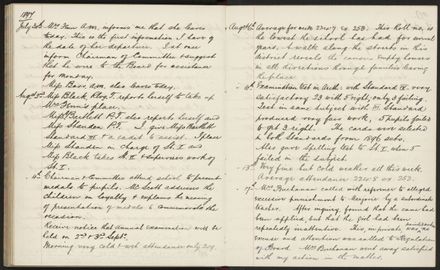 1897
July 30th Mrs Finn A.M. informs me that she leaves
today. This is the first information I have of
the date of her departure. I at once
inform Chairman of Committee & suggest
that he wire to the Board for assistance
for Monday.
Miss Bave A.M. also leaves today.
Miss Black Relg T. reports herself to take up
Mrs Finn's place.
Miss Bartlett P.T. also reports herself and
Miss Standen P.T. I give Miss Bartlett
Standard II to be candidate. I place
Miss Standen in charge of St. I and
Miss Black takes St. II & supervises work of
St. I.
Chairman & Committee attend school to present
medals to pupils. Mr Scott addresses the
children on Loyalty & explains the meaning
of presentation of medals to commemorate the
occasion.
Receive notice that annual examination will be
held on 2nd & 3rd Sept.
Morning very cold & wet attendance only 209.
Average for week 221.7 ex 253. This Roll no. is
the lowest the school has had for several
years. A walk along the streets in this
district reveals the cause. Empty houses
in all directions through families leaving
the place.
Examination test in Arith. with Standard IV. very
satisfactory 23 with 5 right, only 3 failing.
Test in same subject with St. Standard
produced very fair work, 5 pupils failed
to get 3 right. The cards were selected
in both Standards from 1896 sets.
Also gave Spelling test to St. V. when 5
failed in the subject.
13th Very fine but cold weather all this week.
Average attendance 221.5 ex 252.
17th Mrs Buchanan called with reference to alleged
excessive punishment to her girl by a subordinate
teacher. After inquiry found that the cane had
been applied, but that the girl had been
repeatedly inattentive. This, in private, was no
excuse and attention was called to Regulation
of Board. Mrs Buchanan went away satisfied
with my action in the matter.